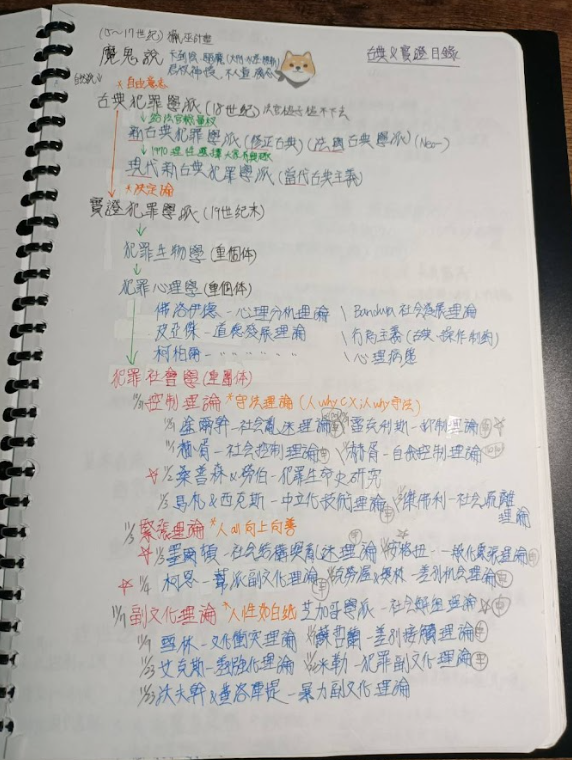 (15~17世紀) 獵巫計畫
古典&實證目錄
魔鬼說
*自由意志
古典犯罪學派(18世紀)
↓給法官裁量權
新古典犯罪學派(修正古典)(法國古典學派)(Neo-)
↓1970理性選擇
現代新古典犯罪學派(當代古典主義)
*決定論
實證犯罪學派(19世紀末)
↓
犯罪生物學(重個體)
↓
犯罪心理學(重個體)
佛洛伊德-心理分析理論 \ Bandura社會發展理論
皮亞傑-道德發展理論 \ 行為主義(古典、操作制約)
柯柏爾- 〃 〃 〃 〃 \ 心理病態
犯罪社會學(重團體)
控制理論 *守法理論 (人why C X 人why守法)
涂爾幹-社會亂迷理論 雷克利斯-抑制理論
赫胥-社會控制理論 赫胥-自我控制理論
☆ 桑普森&勞伯-犯罪生命史研究
馬札&西克斯-中立化技術理論 傑佛利-社會疏離理論
緊張理論 *人all向上向善
☆ 墨爾頓-社會結構與亂迷理論 安格也-一般化緊張理論
☆ 柯恩-幫派副文化理論 克勞屋&奧林-差別機會理論
副文化理論 *人性如白紙 芝加哥學派-社會解組理論
雪林-文化衝突理論 蘇哲蘭-差別接觸理論
艾克斯-差別強化理論 米勒-犯罪副文化理論
沃夫幹&費洛庫提-暴力副文化理論